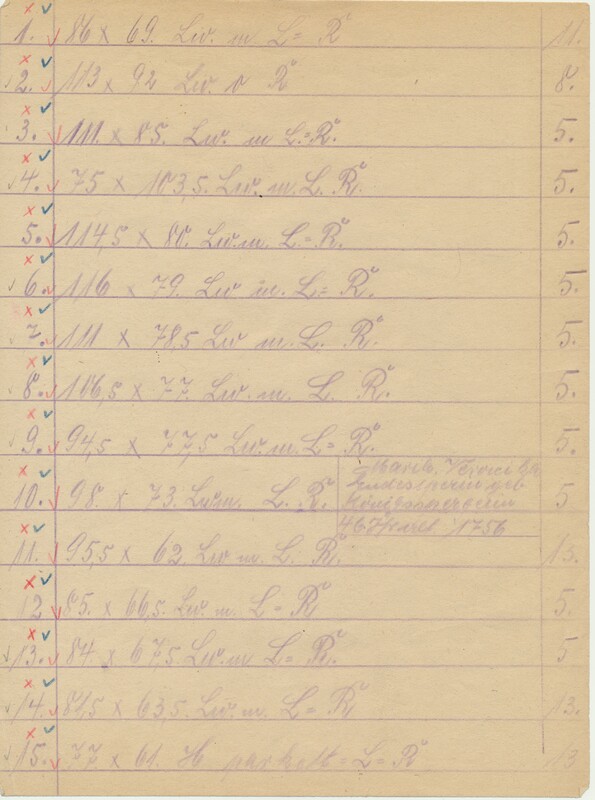 1. 86 x 69. Lw. m L= R 11.
2. 113 x 92 Lw. o R 8.
3. 111 x 85. Lw. m L=R. 5.
4. 75 x 103,5. Lw. m. L. R. 5.
5. 114,5 x 80. Lw. m. L=R. 5.
6. 116 x 79. Lw m. L= R. 5.
7. 111 x 78,5 Lw m. L. R. 5.
8. 106,5 x 77. Lw. m. L. R. 5.
9. 94,5 x 77,5 Lw. m. L= R. 5.
10. 98. x 73. Lwm. L. R. 5
geb
1756
11. 95,5 x 62. Lw m. L. R. 13.
12 85. x 66,5. Lw. m. L= R 5.
13. 84 x 67,5. Lw. m L= R. 5
14. 81,5 x 63,5. Lw. m. L= R 13.
15. 77 x 61. H = L= R 13